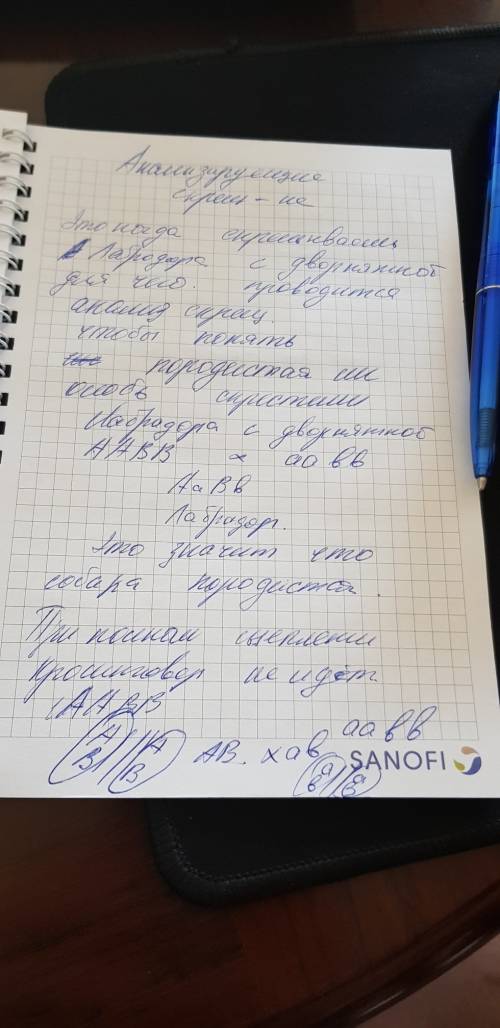 Анализирующие
скрещ-ие
Это когда скрещиваешь
Лабрадора с дворняжкой
для чего. проводится
анализ скрещ.
чтобы понять
породистая ли
особь скрестили
Лабрадора с дворняжкой
ААВВ × аавв
АаВв
Лабрадор.
Это значит что
собара породистая.
При полном сцеплении
Кросинговер не идёт
ААВВ
аавв
А А АВ. х ав
В В
а а
в в
SANOFI